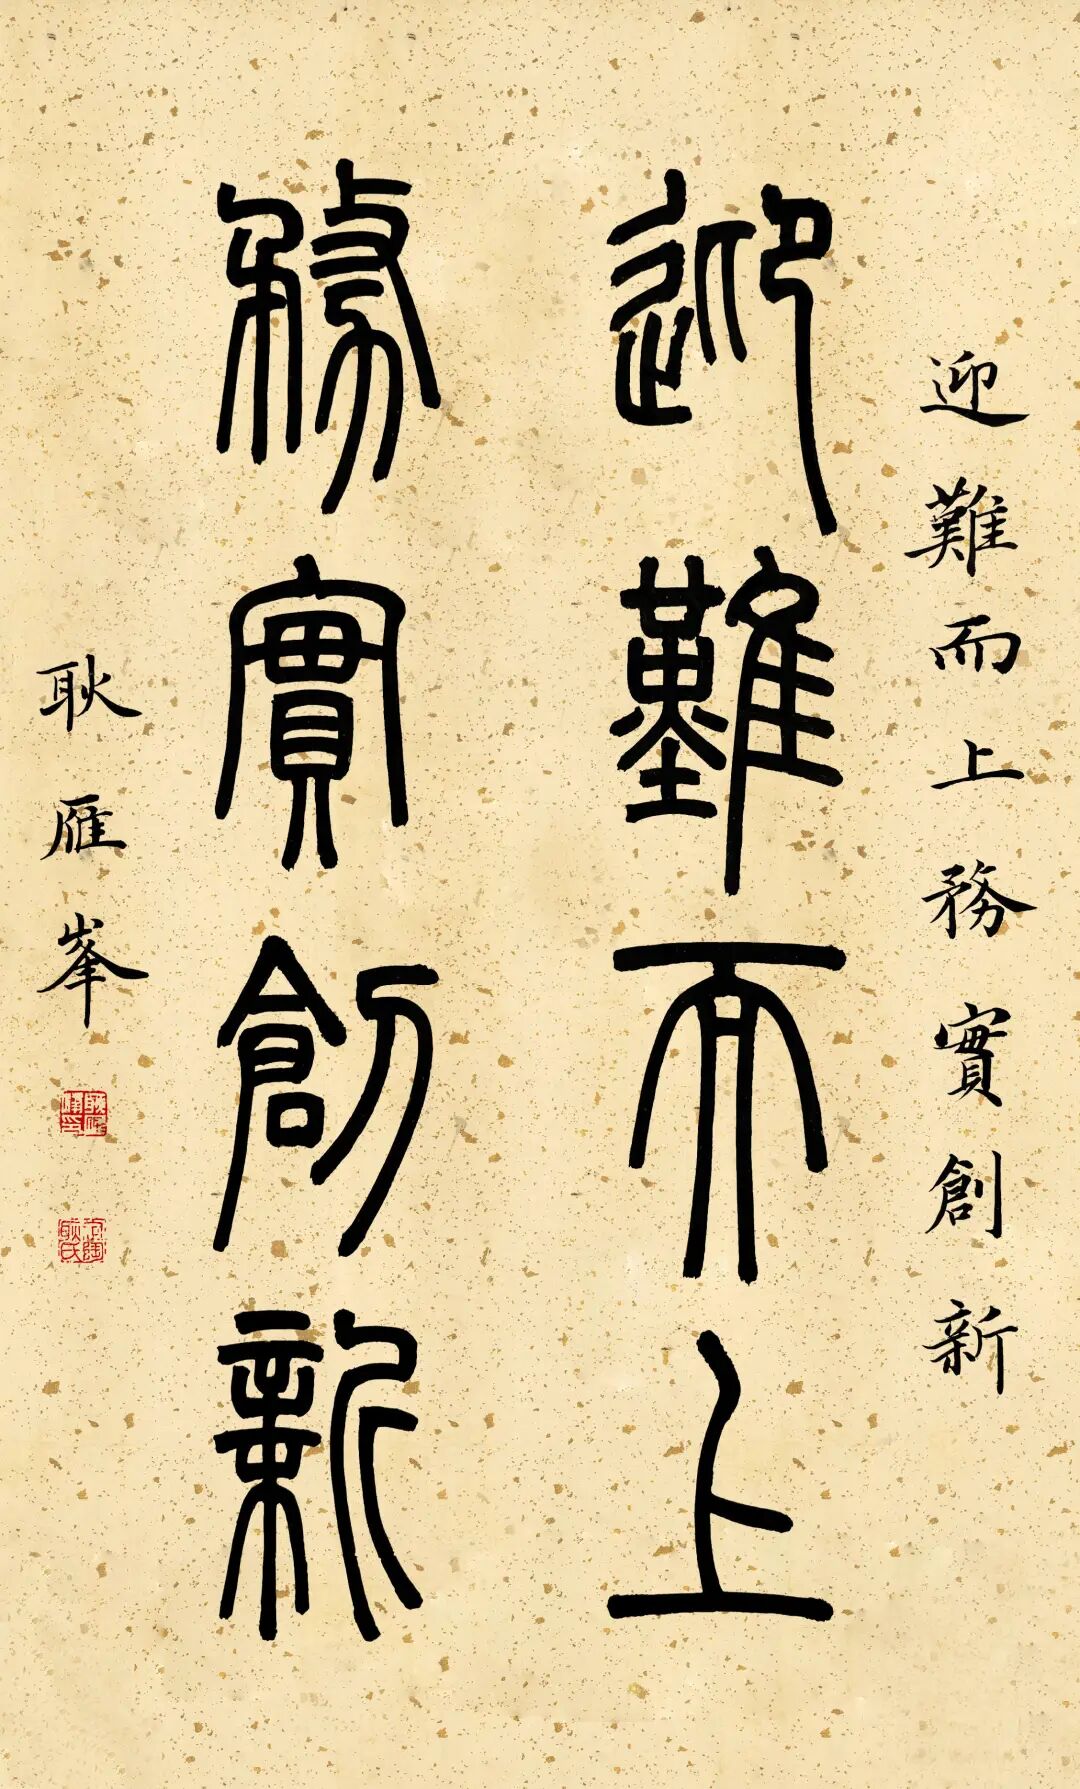 迎難而上務實創新
迎難而上
務實創新
耿雁峯